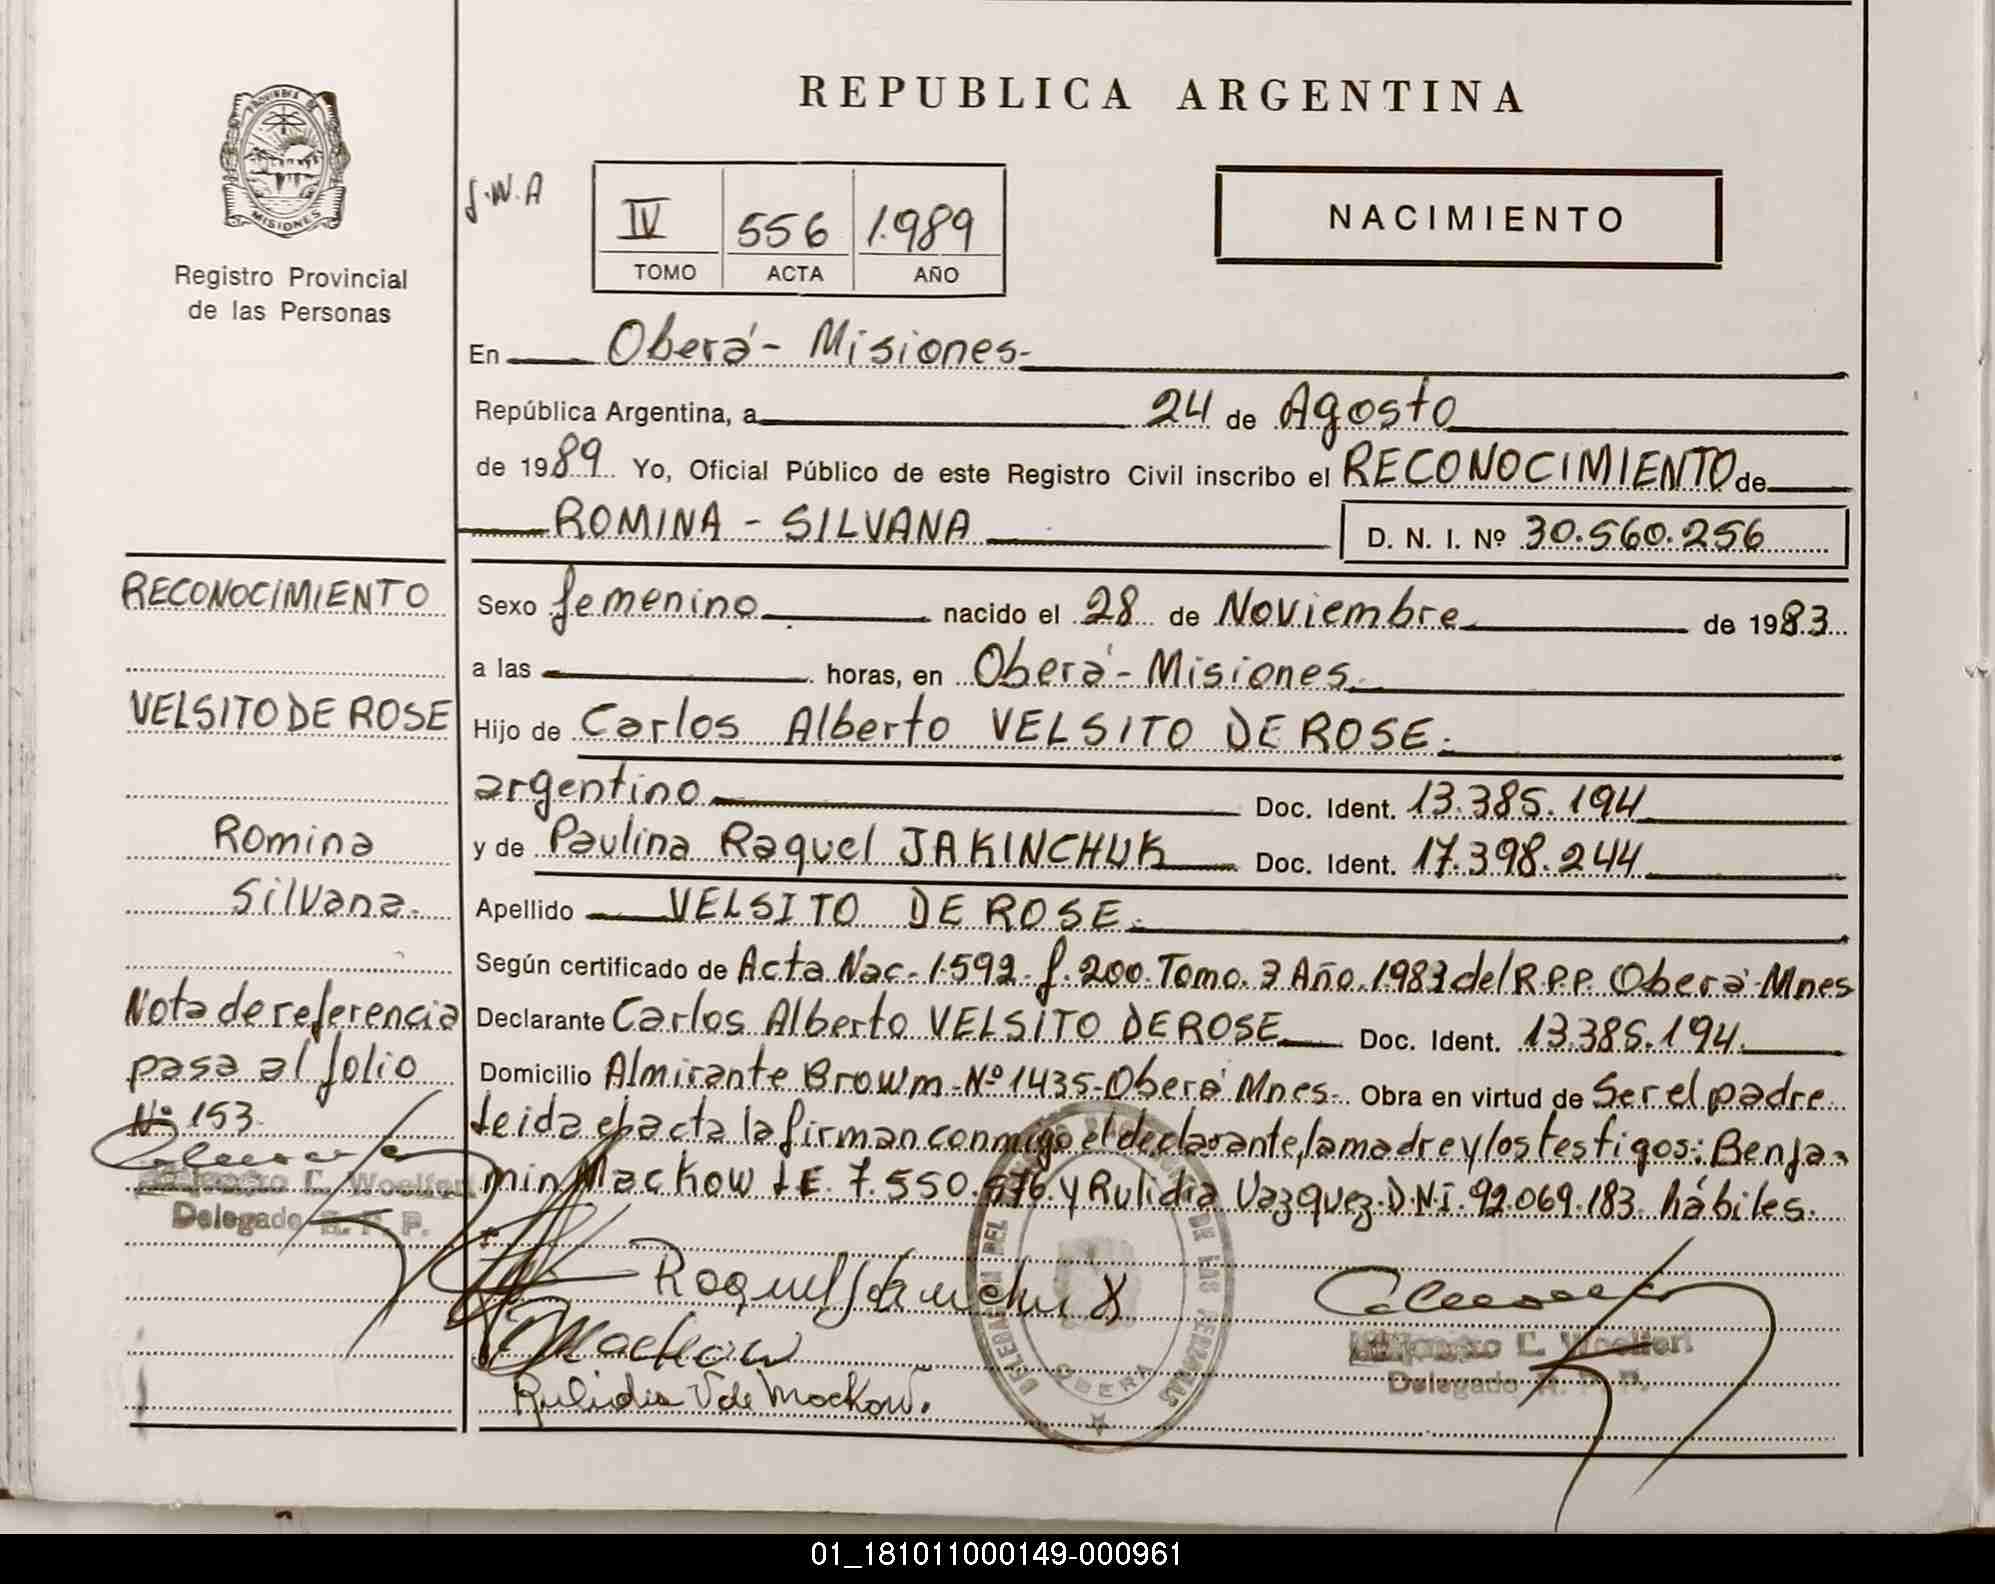 REPUBLICA ARGENTINA
PROVINCIA DE
MISIONES
Registro Provincial
de las Personas
J.N.A
IV 556 1.989
TOMO ACTA AÑO
NACIMIENTO
En Oberá - Misiones-
República Argentina, a 24 de Agosto
de 1989 Yo, Oficial Público de este Registro Civil inscribo el RECONOCIMIENTO de
ROMINA - SILVANA D. N. I. Nº 30.560.256
Sexo femenino nacido el 28 de Noviembre de 1983
a las horas, en Oberá - Misiones.
Hijo de Carlos Alberto VELSITO DE ROSE.
argentino Doc. Ident. 13.385.194
y de Paulina Raquel JAKINCHUK Doc. Ident. 17.398.244
Apellido VELSITO DE ROSE.
Según certificado de Acta Nac- 1.592- f. 200. Tomo. 3 Año. 1983 del R.P.P. Oberá-Mnes
Declarante Carlos Alberto VELSITO DE ROSE Doc. Ident. 13.385.194.
Domicilio Almirante Browm-Nº 1435-Oberá Mnes- Obra en virtud de Ser el padre
Leida el acta la firman conmigo el declarante, la madre y los testigos: Benja-
min Mackow L E. 7.550.576. y Rulidia Vazquez-D.N.I. 92.069.183 hábiles.
RECONOCIMIENTO
VELSITO DE ROSE
Romina
Silvana.
Nota de referencia
pasa al folio
Nº 153
Woelfert
Delegado R. P. P.
Raquel Jakinchuk
Mackow
Rulidia V de Mackow.
DE LAS PERSONAS
OBERA
E. Woelfert
Delegado R. P. P.
01_181011000149-000961